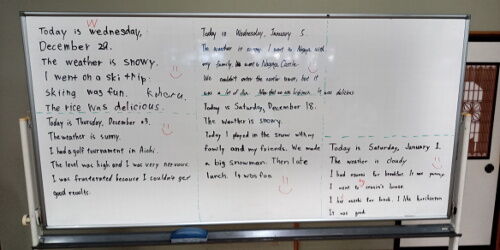 W
Today is wednesday,
December 22.
The weather is snowy.
I went on a ski trip.
Skiing was fun. Koharu.
The rice was delicious.
Today is Thursday, December 23.
The weather is sunny.
I had a golf tournament in Aichi.
The level was high and I was very nervous.
I was frusterated because I couldn't get
good results.
Today is Wednesday, January 5.
The weather is sunny. I went to Nagoya with
my family. We went to Nagoya Castle.
We couldn't enter the castle tower, but it
was a lot of fun. it was delicious
Today is Saturday, December 18.
The weather is snowy.
Today I played in the snow with my
family and my friends. We made
a big snowman. Then late
lurch. It was fun
Today is Saturday, January 1.
The weather is cloudy
I had for breakfast. It was yummy.
I went to cousin's house.
I had for lunch. I like
It was good.